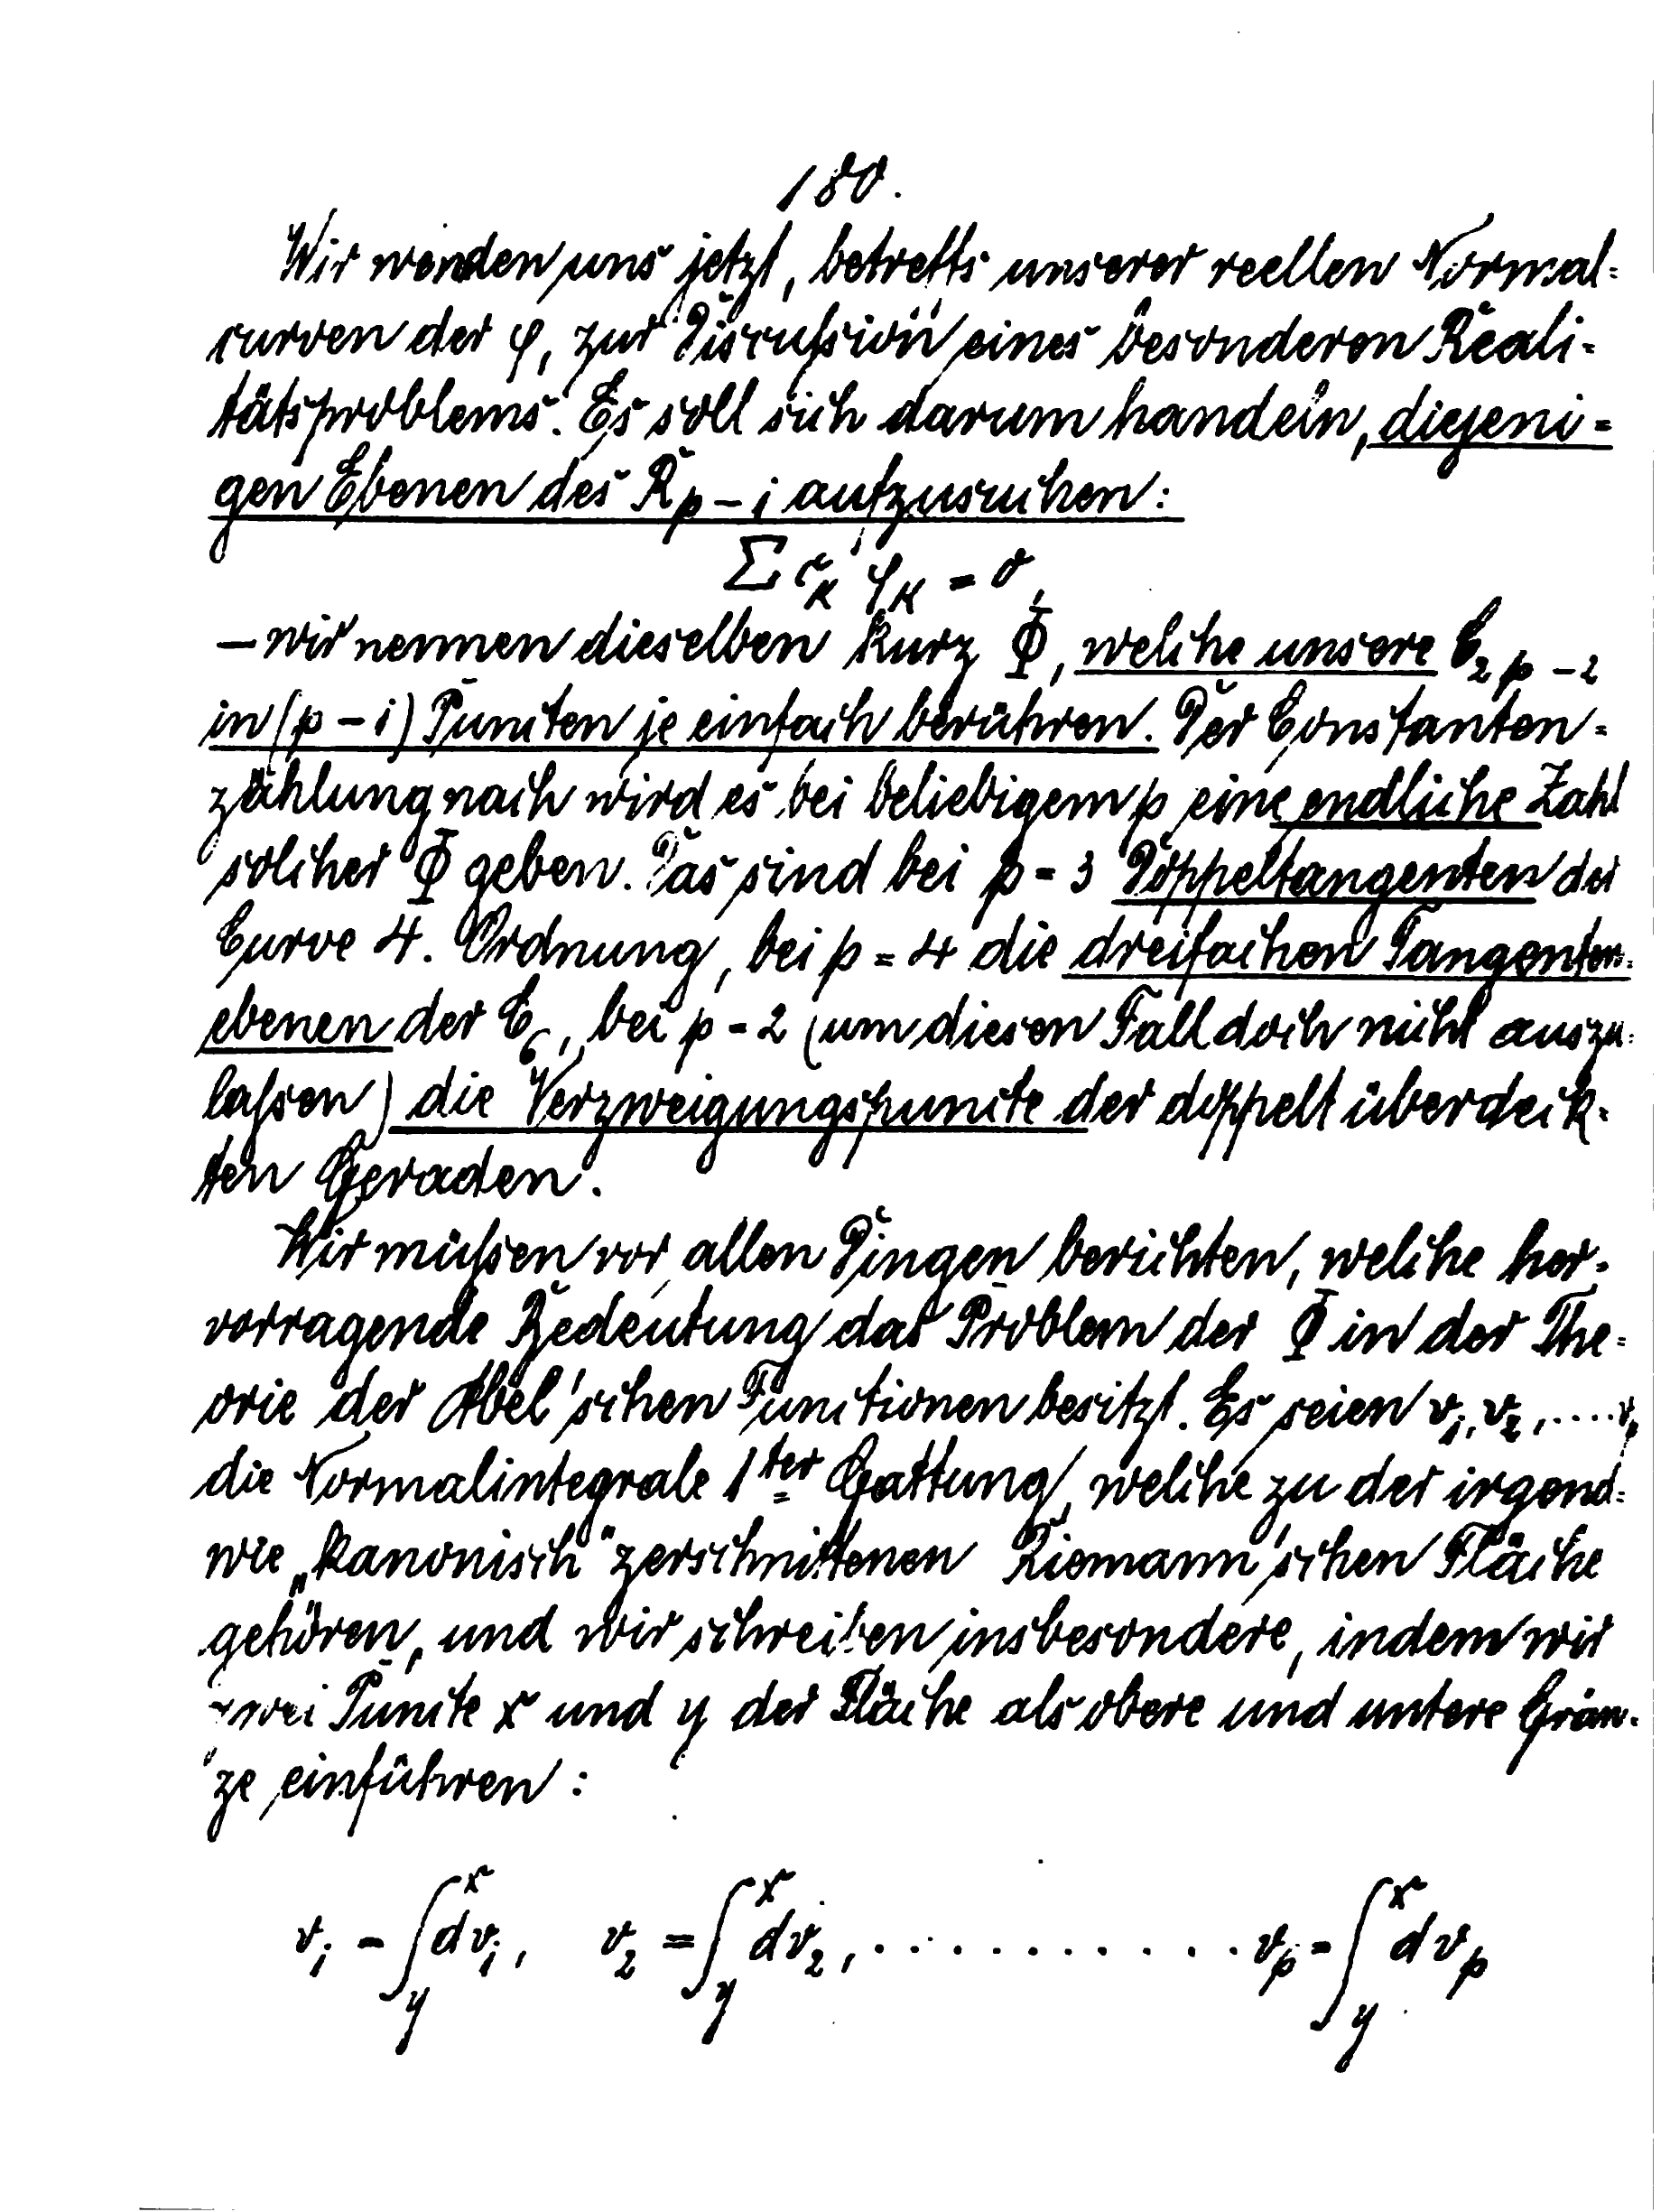 180.
Wir wenden uns jetzt, betreffs unserer reellen Normal-
curven der φ, zur Discussion eines besonderen Reali-
tätsproblems. Es soll sich darum handeln, diejeni-
gen Ebenen des R_{p-1} aufzusuchen:
Σ c_κ φ_κ = 0,
– wir nennen dieselben kurz Φ, welche unsere C_{2p-2}
in (p-1) Puncten je einfach berühren. Der Constanten-
zählung nach wird es bei beliebigem p eine endliche Zahl
solcher Φ geben. Das sind bei p = 3 Doppeltangenten der
Curve 4. Ordnung, bei p = 4 die dreifachen Tangenten-
ebenen der C_6, bei p = 2 (um diesen Fall doch nicht auszu-
lassen) die Verzweigungspuncte der doppelt überdeck-
ten Geraden.
Wir müssen vor allen Dingen berichten, welche her-
vorragende Bedeutung das Problem der Φ in der The-
orie der Abel'schen Functionen besitzt. Es seien v_1, v_2, .... v_p
die Normalintegrale 1ter Gattung, welche zu der irgend-
wie „kanonisch" zerschnittenen Riemann'schen Fläche
gehören, und wir schreiben insbesondere, indem wir
zwei Puncte x und y der Fläche als obere und untere Grän-
ze einführen:
v_1 = ∫_y^x dv_1, v_2 = ∫_y^x dv_2, ........... v_p = ∫_y^x dv_p